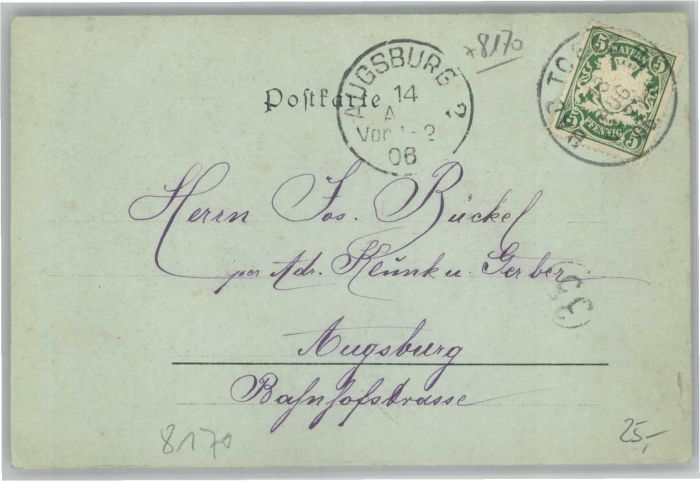 Postkarte
AUGSBURG 2
14
A
Vor 1-2
06
*8170
5 BAYERN 5
5 PFENNIG 5
Herrn Jos. Bückel
per Adr. Klunk u. Gerber
Augsburg
Bahnhofstrasse
8170
25,-